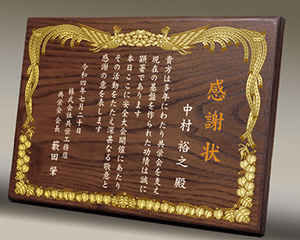 感謝状
中村裕之 殿
貴方は多年にわたり共栄会を支え
現在の基盤を作られた功績は誠に
顕著であります
本日ここに安全大会開催にあたり
その活動をたたえ深甚なる敬意と
感謝の意を表します
令和四年七月二十日
株式会社共栄工務店
共栄会会長 薮田肇